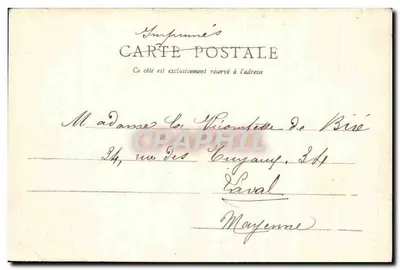 Imprimés
CARTE POSTALE
Ce côté est exclusivement réservé à l'adresse
Madame la Vicomtesse de Biré
34, rue des Tuyaux, 34
Laval
Mayenne
CPAPHIL